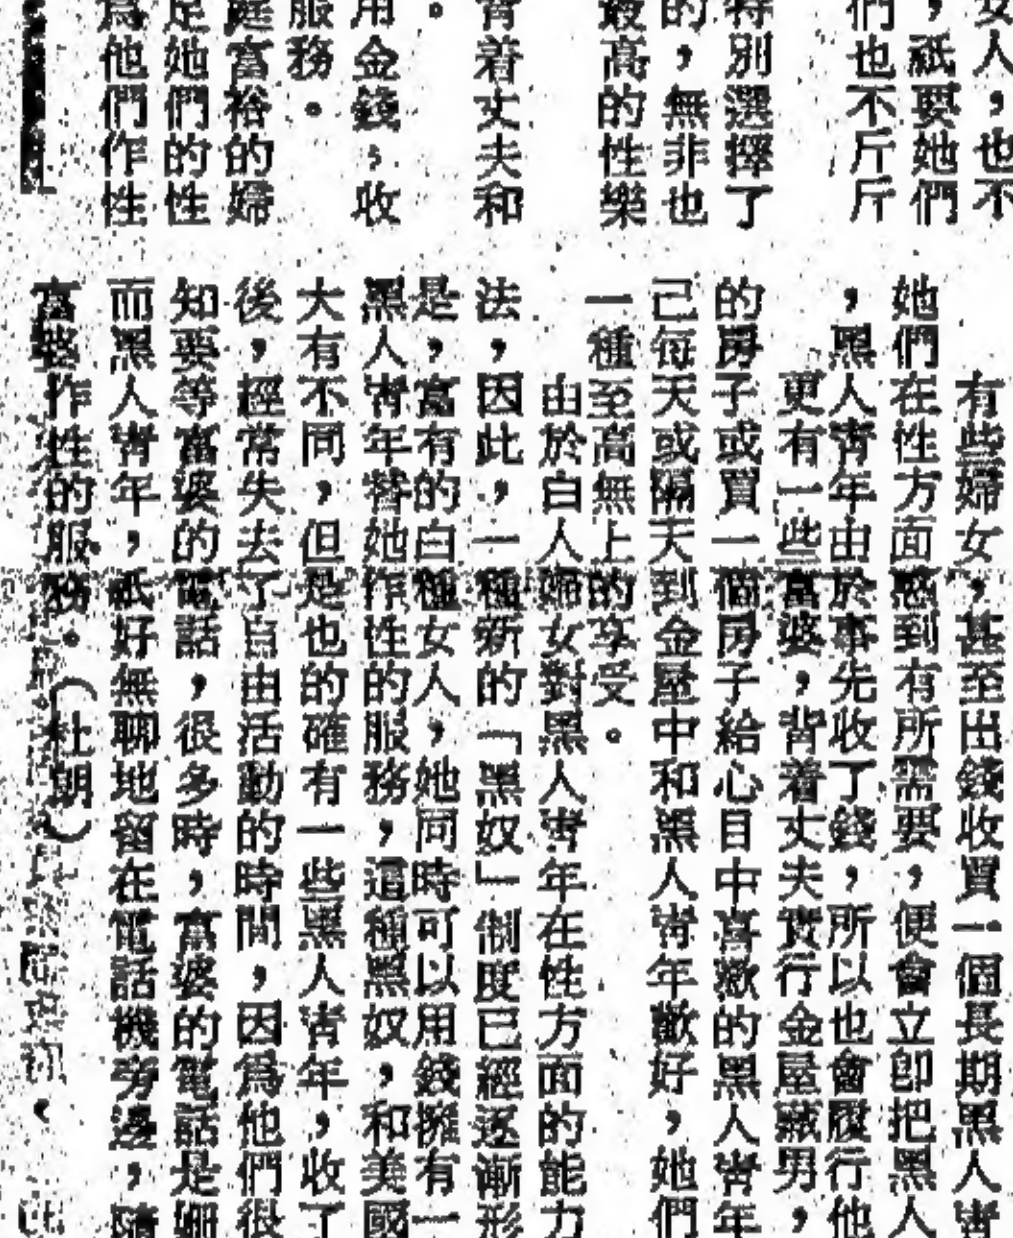 女人，也不
，祇要她們
們也不斤斤
特別選擇了
的，無非也
最高的性樂
背着丈夫和
。
用金錢，收
服務。
庭富裕的婦
足她們的性
爲他們作性
有些婦女，甚至出錢收買一個長期黑人靑
她們在性方面感到有所需要，便會立卽把黑人
，黑人靑年由於事先收了錢，所以也會履行他
更有一些富婆，背着丈夫實行金屋藏男，
的房子或買一個房子給心目中喜歡的黑人靑年
己每天或隔天到金屋中和黑人靑年歡好，她們
一種至高無上的享受。
由於白人婦女對黑人靑年在性方面的能力
法，因此，一種新的「黑奴」制度已經逐漸形
是，富有的白種女人，她同時可以用錢擁有一
黑人靑年替她作性的服務，這種黑奴，和美國
大有不同，但是也的確有一些黑人靑年，收了
後，經常失去了自由活動的時間，因爲他們很
知要等富婆的電話，很多時，富婆的電話是姍
而黑人靑年，祇好無聊地留在電話機旁邊，隨
富婆作性的服務。（杜朗）